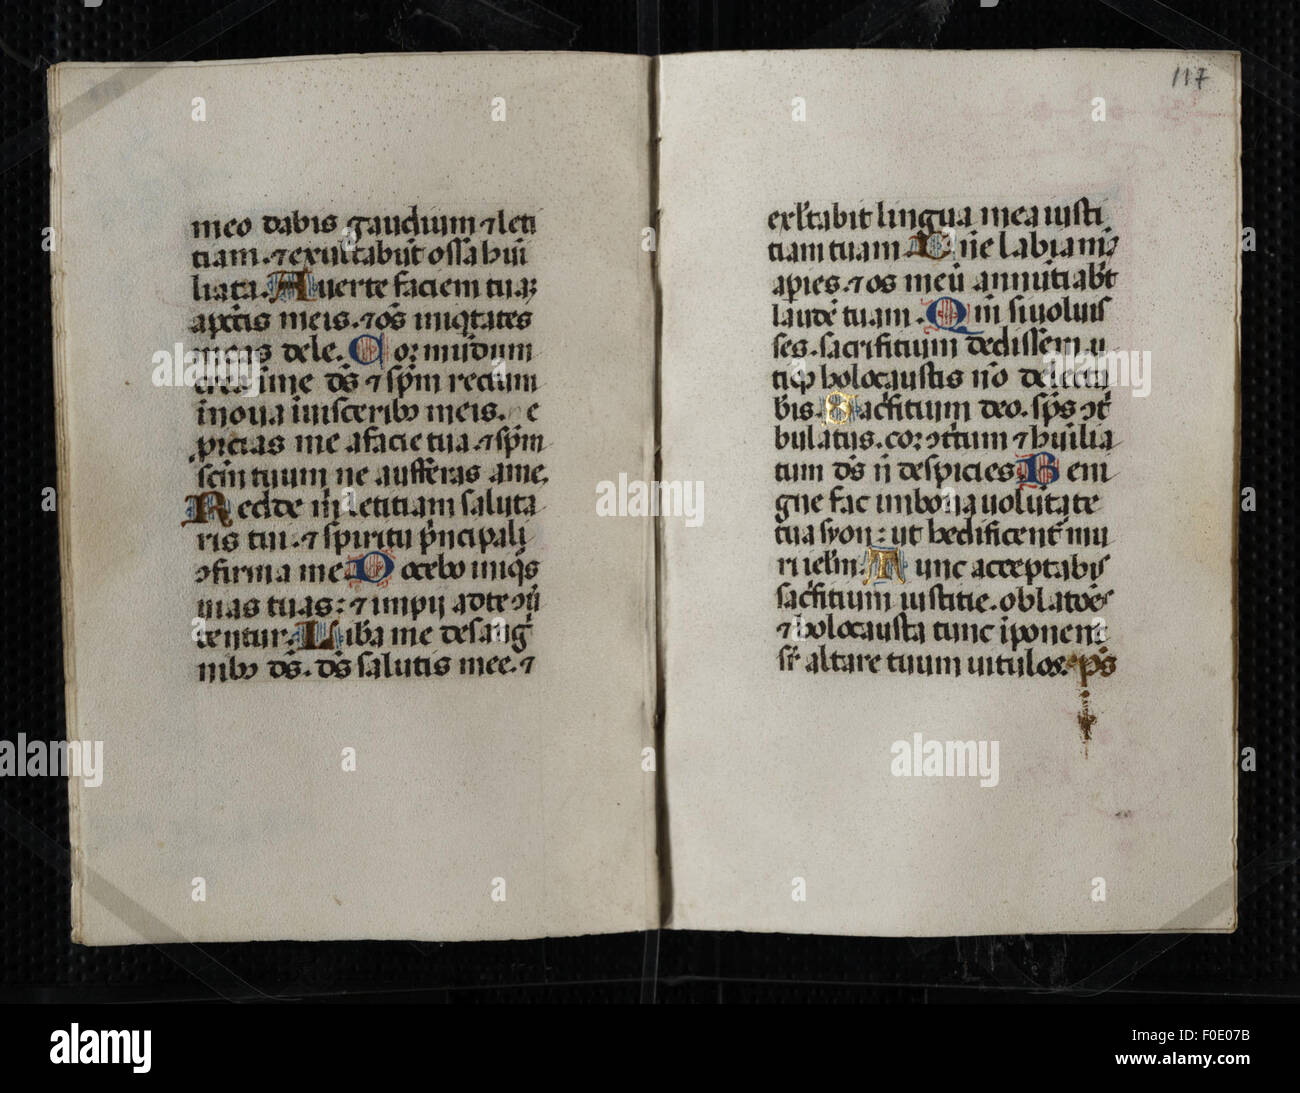 meo dabis gaudium ⁊ leti
tiam. ⁊ exultabūt ossa humi
liata. Auerte faciem tuaꝫ
apctis meis. ⁊ oēs iniq̄tates
meas dele. Cor mūdum
crea ī me ds̄ ⁊ spm̄ rectum
īnoua ī uisceribꝰ meis. e
picias me a facie tua. ⁊ spm̄
scm̄ tuum ne aufferas a me.
Redde m̄ letitiam saluta
ris tui. ⁊ spiritu p̄ncipali
ↄfirma me. Docebo iniqͦs
uias tuas: ⁊ impij ad te ↄū
tentur. Libā me de sang
nibꝰ ds̄. ds̄ salutis mee. ⁊
117
exl̄tabit lingua mea iusti
tiam tuam. Dn̄e labia mꝰ
apies. ⁊ os meū annūtiabt
laudē tuam. Qm̄ si uoluis
ses. sacrifitium dedissem u
tiqꝫ holocaustis nō delecta
bis. Sacfitium deo. sps̄ ↄt̄
bulatus. cor ↄt̄tum ⁊ humilia
tum ds̄ n̄ despicies. Beni
gne fac in bona uolūtate
tua syon: ut hedificent̄ mu
ri ierlm̄. Tunc acceptabis
sacfitium iustitie. oblatōes
⁊ holocausta tunc īponent
sr̄ altare tuum uitulos. ps̄
alamy
a
alamy
Image ID: F0E07B
www.alamy.com